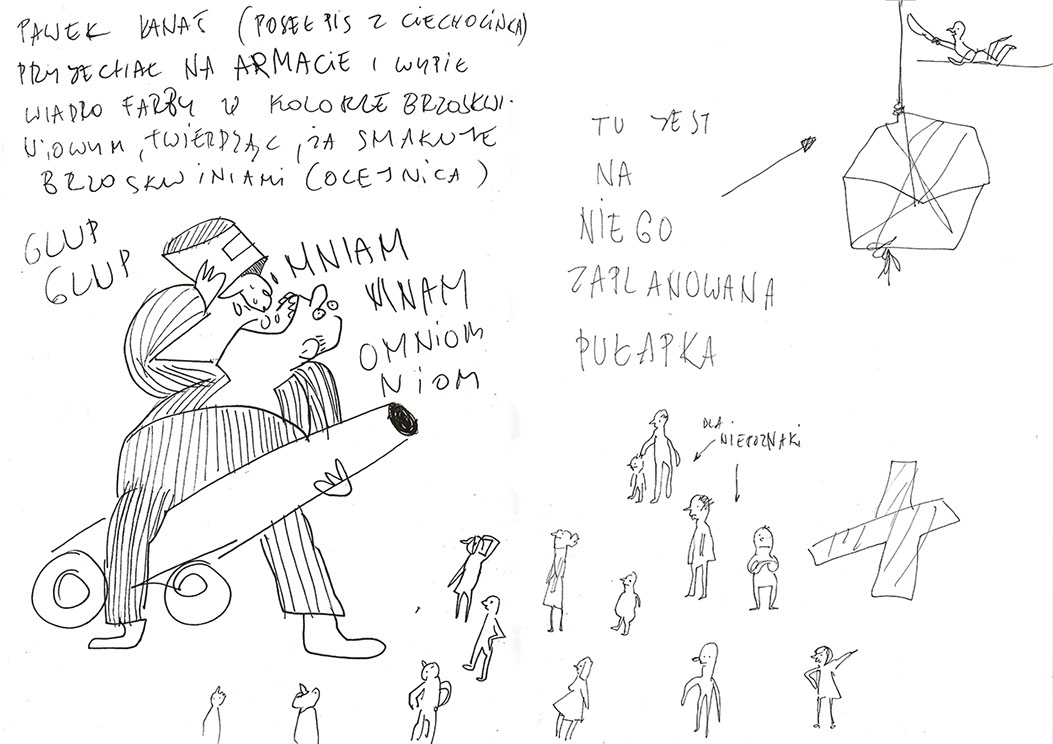 PAWEK KANAŁ (POSEŁ PIS Z CIECHOCINCA)
PRZYJECHAŁ NA ARMACIE I WYPIŁ
WIADRO FARBY W KOLORZE BRZOSKWI-
NIOWYM, TWIERDZĄC, ŻA SMAKUJE
BRZOSKWINIAMI (OLEJNICA)
GLUP
GLUP
MNIAM
MNAM
OMNIOM
NIOM
TU JEST
NA
NIEGO
ZAPLANOWANA
PUŁAPKA
DLA
NIEPOZNAKI